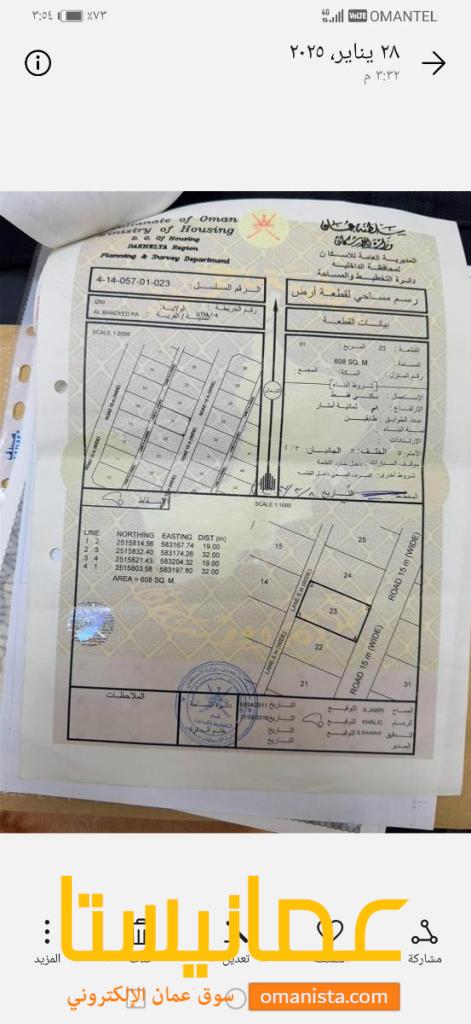 ٣:٥٤ ٪٧٣ 4G VoLTE OMANTEL
٢٨ يناير، ٢٠٢٥
٣:٣٢ م
nate of Oman
Ministry of Housing
D. G. Of Housing
DAKHELYA Region
Planning & Survey Department
سلطنة عمان
وزارة الإسكان
المديرية العامة للاسكان
لمحافظة الداخلية
دائرة التخطيط والمساحة
4-14-057-01-023 الرقم المسلسل:
رسم مساحي لقطعة أرض
IZKI الولاية: رقم الخريطة:
AL KHADYED PA
بيانات القطعة
القطعة : 23 المربع : 61
المساحة : 608 SQ. M.
رقم المنزل : السكة: المجمع :
شروط البناء
الاستعمال : سكني فقط
الارتفاع : ٨م ثمانية أمتار
عدد الطوابق : طابقين
نسبة البناء :
الارتدادات :
الأمام : ٥ الخلف: ٣ الجانبان: ٢/٣
موقف السيارات : داخل حدود القطعة
التاريخ
SCALE 1:2000
ROAD 15 m (WIDE)
SCALE 1:1000
الشمال
LINE NORTHING EASTING DIST (m)
1 2 2515814.56 583167.74 19.00
2 3 2515832.40 583174.26 32.00
3 4 2515821.43 583204.32 19.00
4 1 2515803.58 583197.80 32.00
AREA = 608 SQ. M.
15
25
14
24
23
22
21
31
LANE 5 m (WIDE)
LANE 5 m (WIDE)
ROAD 15 m (WIDE)
ROAD 15 m (WIDE)
الملاحظات
المساح A.JABRI التوقيع التاريخ
الرسام KHALID التوقيع التاريخ
التدقيق S.RAWAHI التوقيع التاريخ
المدير
مشاركة
تعديل
المزيد
عمانيستا
سوق عمان الإلكتروني
omanista.com